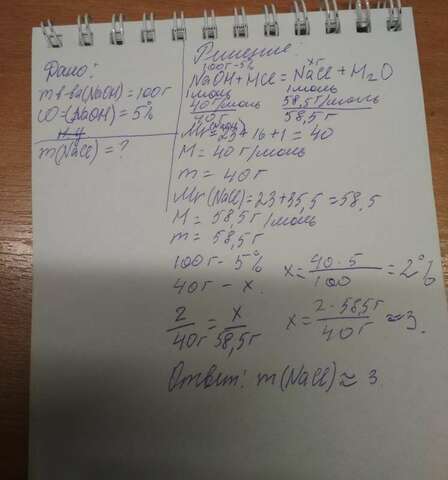 Дано:
m в-ва(NaOH)=100г
ω-(NaOH)=5%
m(NaCl)=?
Решение:
100г-5% xг
NaOH+HCl=NaCl+H₂O
1моль 1моль
40г/моль 58,5г/моль
40г 58,5г
Mr(NaOH)=23+16+1=40
M=40г/моль
m=40г
Mr(NaCl)=23+35,5=58,5
M=58,5г/моль
m=58,5г
100г-5%
40г-x.
x=40·5/100=2%
2/40г=x/58,5г
x=2·58,5г/40г≈3.
Ответ: m(NaCl)≈3